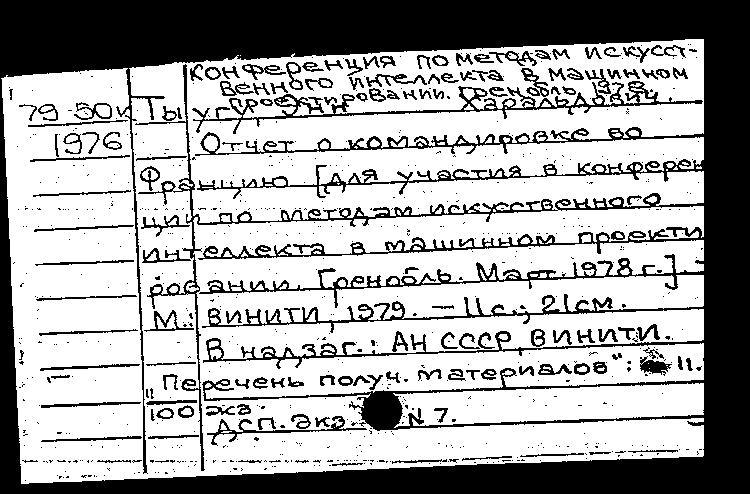 Конференция по методам искусст-
венного интеллекта в машинном
проектировании. Гренобль, 1978.
79-50к Тыугу, Энн Харальдович.
1976 Отчет о командировке во
Францию [для участия в конферен
ции по методам искусственного
интеллекта в машинном проекти
ровании. Гренобль. Март. 1978 г.] -
М.: ВИНИТИ, 1979. - 11 с.; 21 см.
В надзаг.: АН СССР, ВИНИТИ.
"Перечень получ. материалов": 11.
100 экз.
ДСП. Экз. N 7.